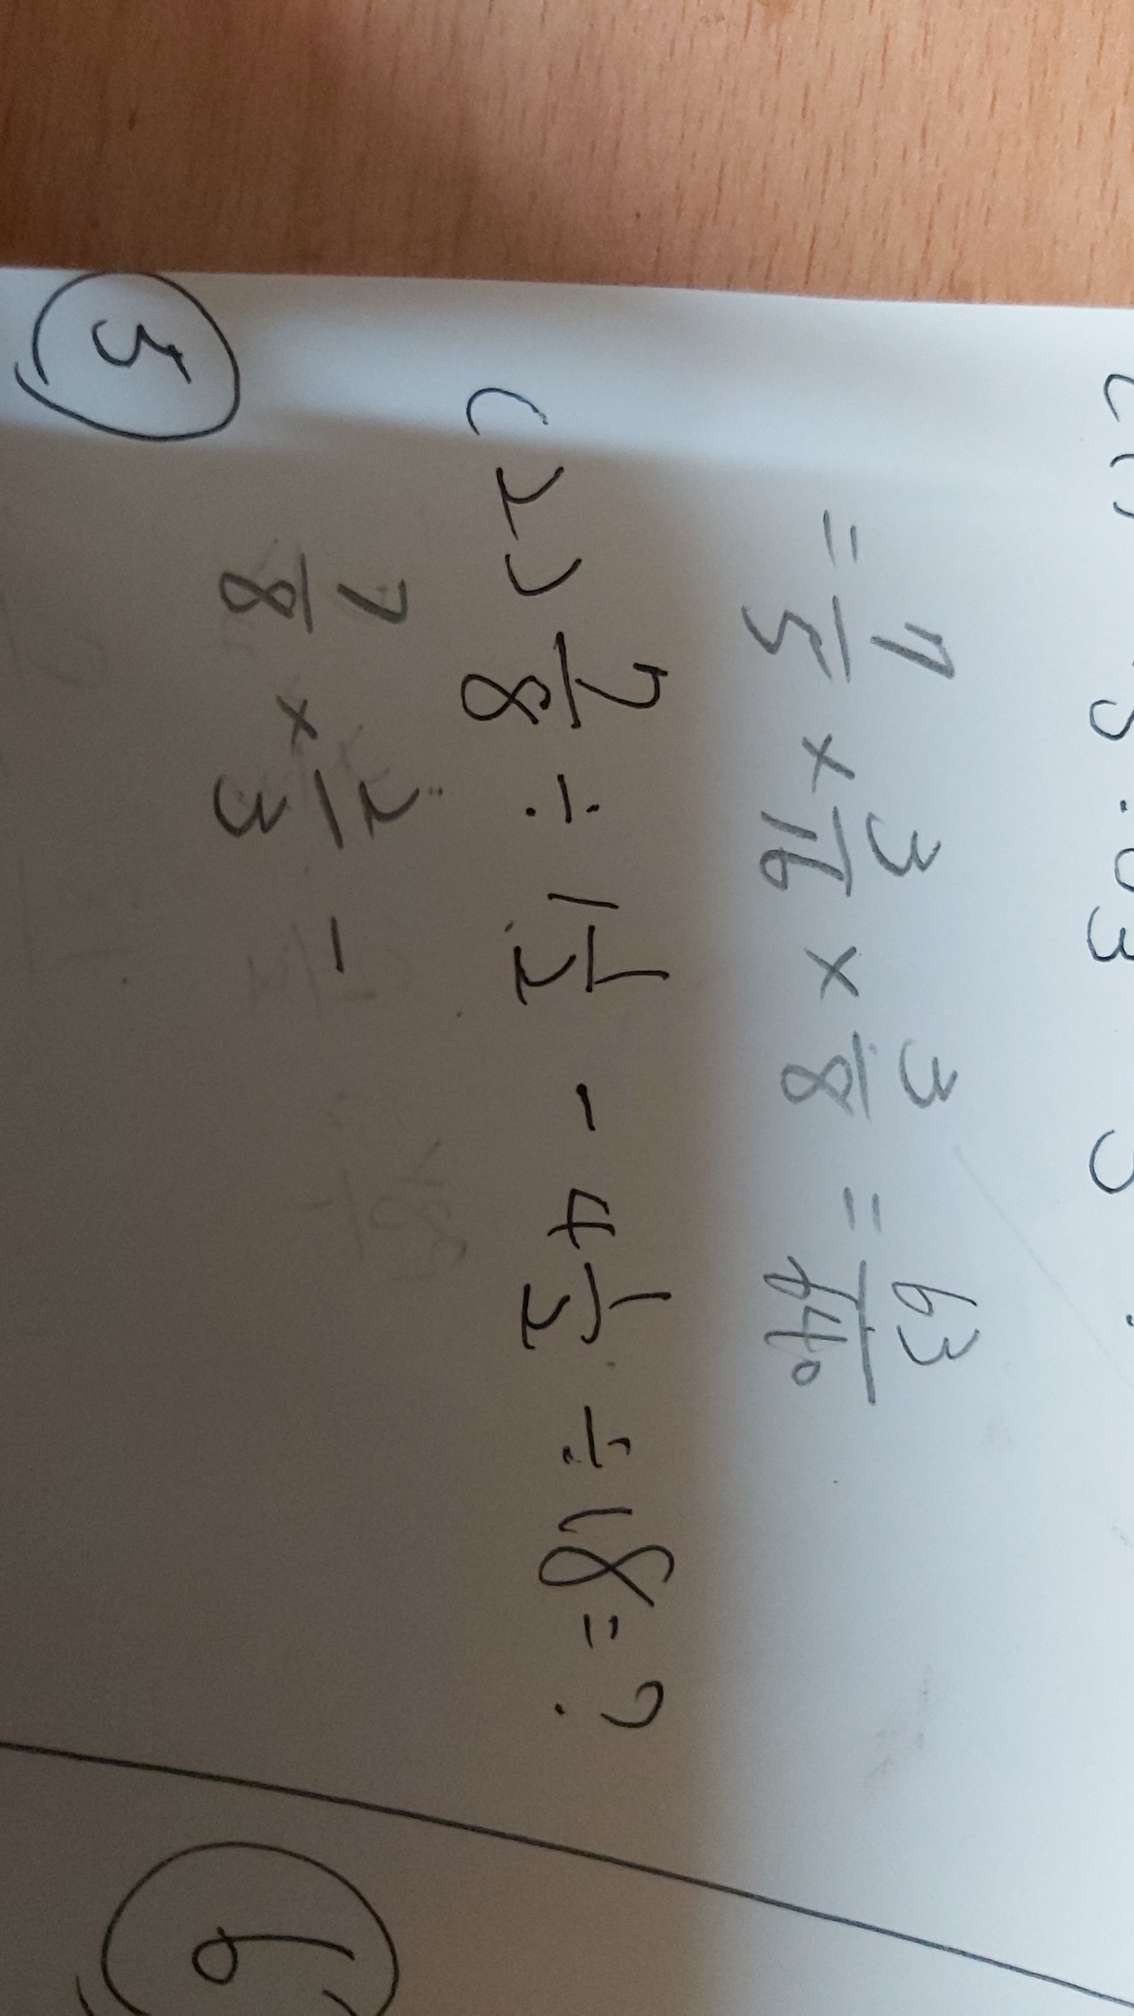 = 7/5 × 3/16 × 3/8 = 63/640
(2) 7/8 ÷ 1 1/2 - 4 1/2 ÷ 18 = ?
7/8 × 2/3 -
5
6